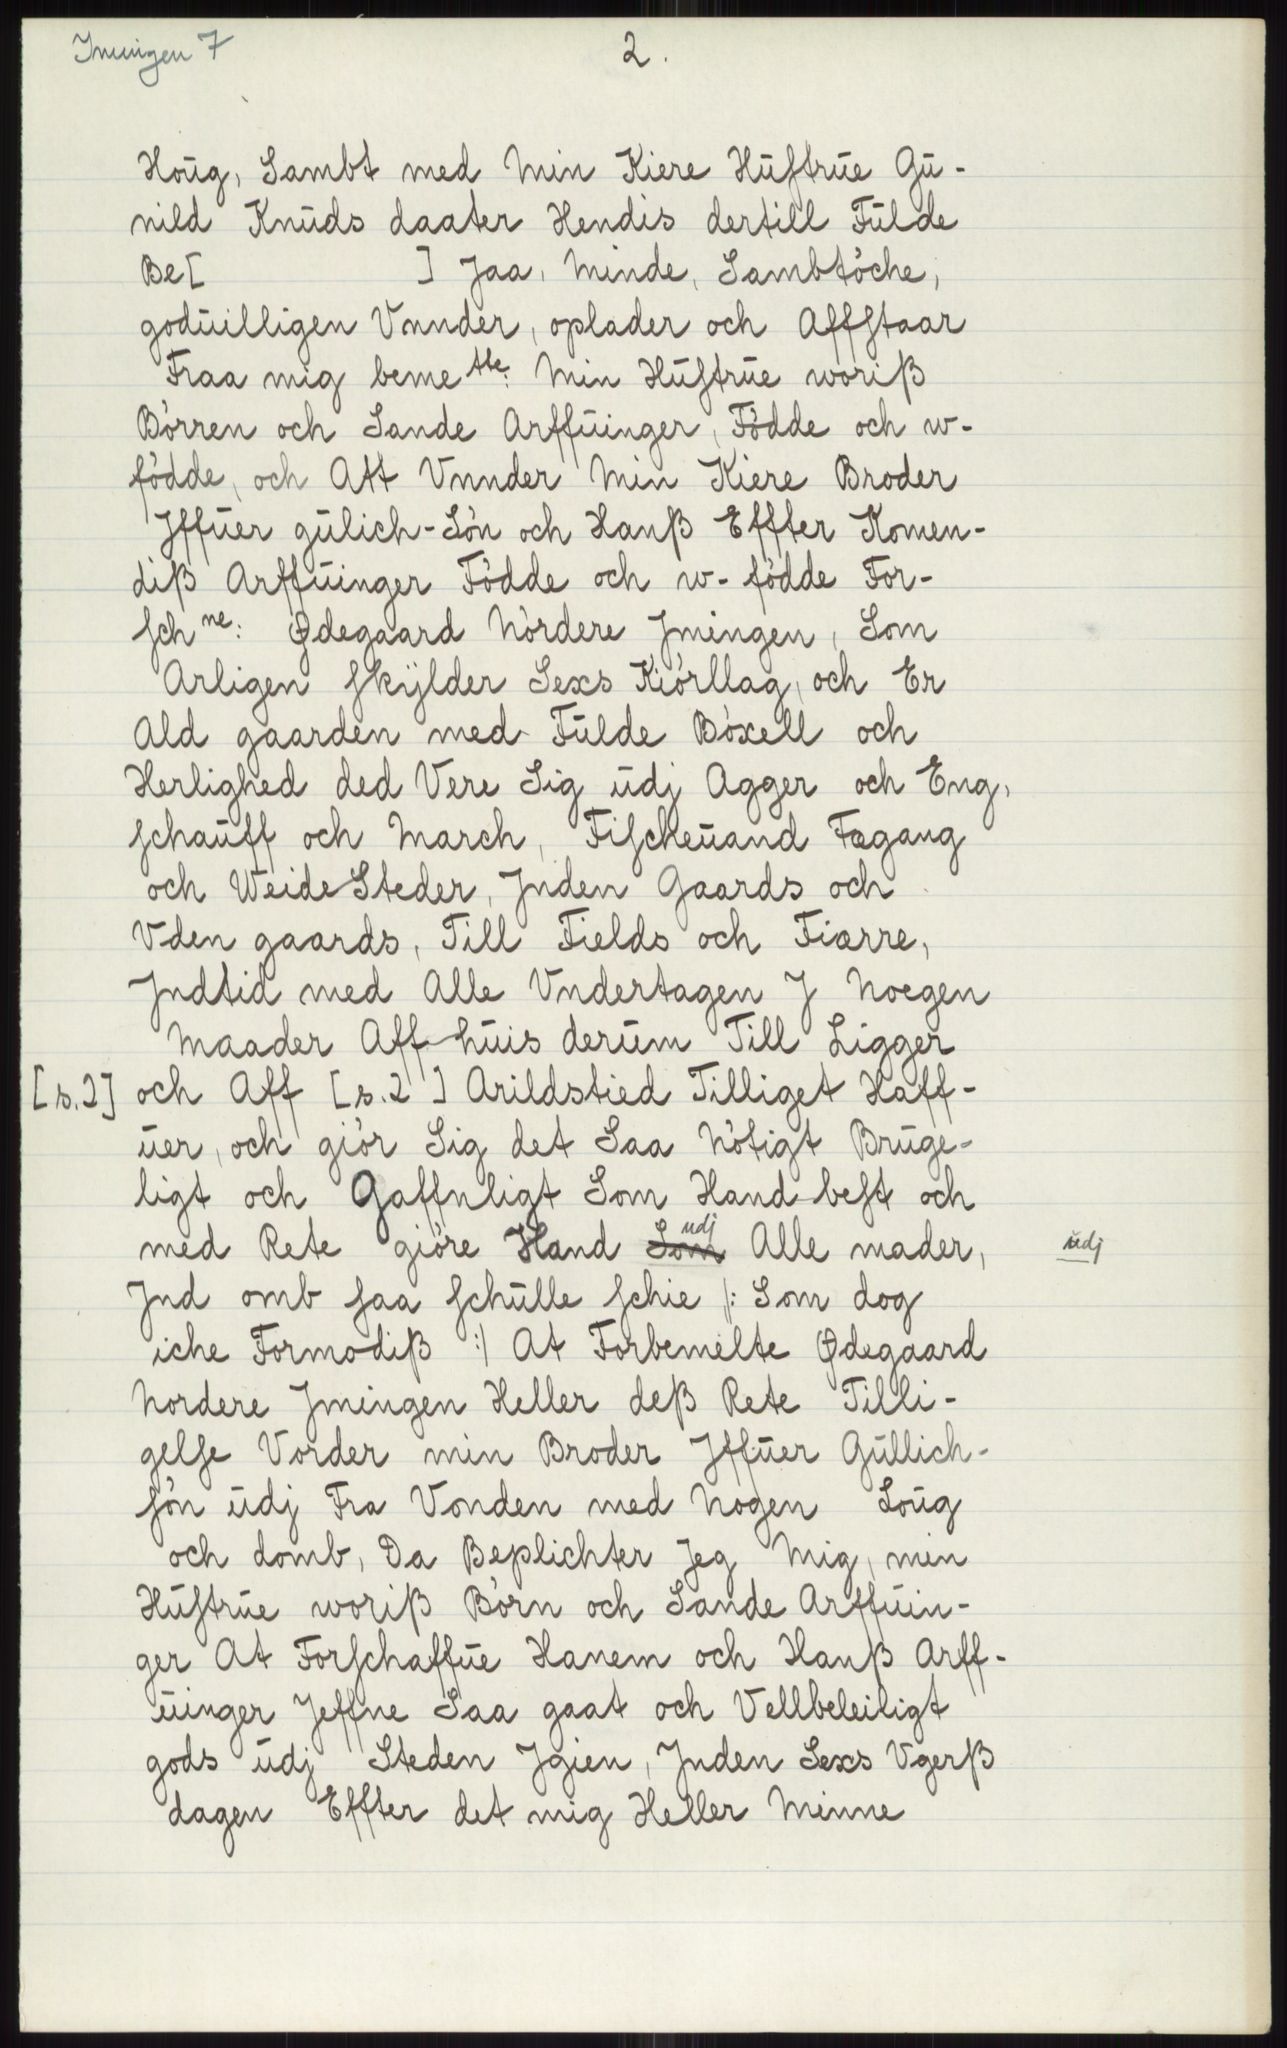 Imingen 7
2.
Hoūg, Sambt med Min Kiere Hūstrūe Gū-
nild Knūds daater Hendis dertill Fūlde
Be[ ] Jaa, Minde, Sambtöche,
godūilligen Vnnder, oplader och Affstaar
Fraa mig beme tte: Min Hūstrūe woriß
Börren och Sande Arffūinger, Födde och w-
födde, och Att Vnnder Min Kiere Broder
Jffūer gūlich-Sön och Hanß Effter Komen-
diß Arffūinger Födde och w-födde For-
sch ne: Ødegaard Nördere Jmingen, Som
Arligen skÿlder Sexs Kiörllag, och Er
Ald gaarden med Fūlde Böxell och
Herlighed ded Vere Sig ūdj Agger och Eng,
schaūff och March, Fischeūand Fægang
och Weide Steder, Jnden Gaards och
Vden gaards, Till Fields och Fiærre,
Jndtid med Alle Vndertagen J Noegen
Maader Aff hūis derūm Till Ligger
[s.2] och Aff [s.2] Arildstied Tilliget Haff-
ūer, och giör Sig det Saa Nötigt Brūge-
ligt och Gaffnligt Som Hand best och
med Rete giöre Hand ~~Som~~ udj Alle mader, ūdj
Jnd omb saa schūlle schie /: Som dog
iche Formodiß :/ At Forbemelte Ødegaard
Nordere Jmingen Heller deß Rete Tilli-
gelse Vorder min Broder Jffūer Gūllich-
sön ūdj Fra Vonden med Nogen Loūg
och domb, Da Beplichter Jeg Mig, min
Hūstrūe woriß Börn och Sande Arffūin-
ger At Forschaffūe Hanem och Hanß Arff-
ūinger Jeffne Saa gaat och Vellbeleiligt
gods ūdj Steden Jgien, Jnden Sexs Vgerß
dagen Effter det mig Heller Minne